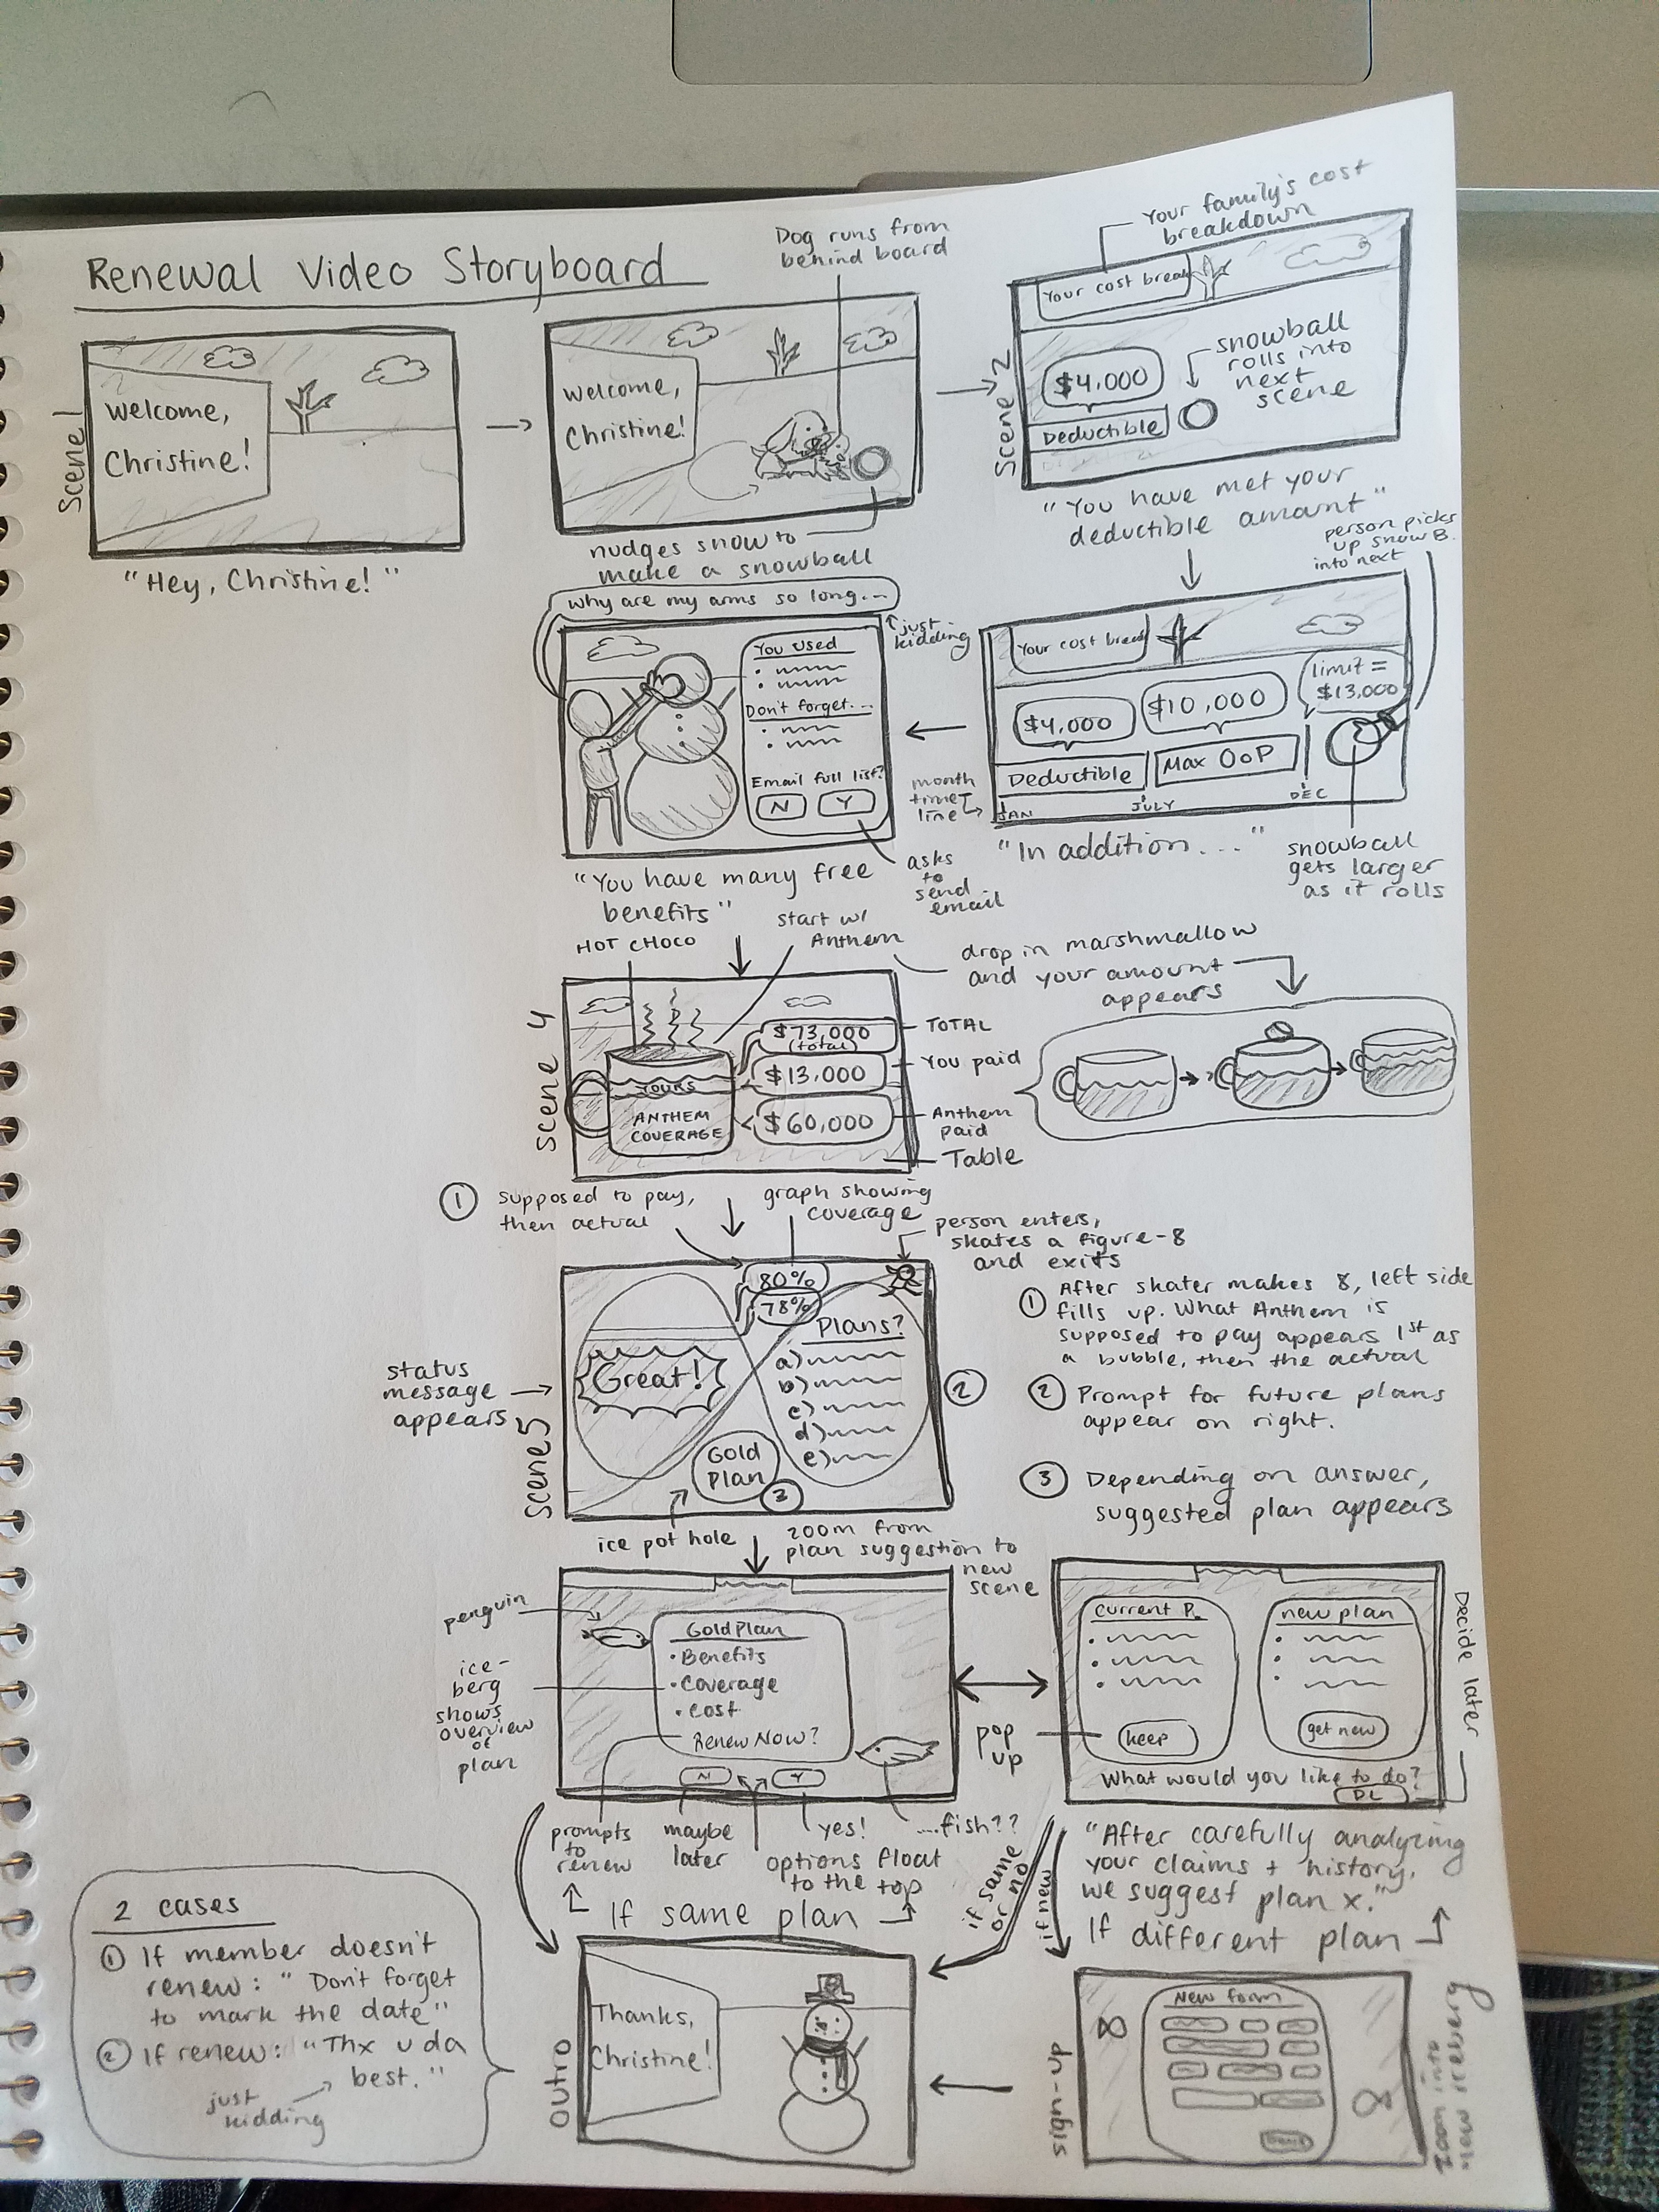 Renewal Video Storyboard
Scene 1
Welcome,
Christine!
"Hey, Christine!"
Dog runs from
behind board
Welcome,
Christine!
nudges snow to
make a snowball
Your family's cost
breakdown
Scene 2
Your cost break
$4,000
Deductible
snowball
rolls into
next
scene
"You have met your
deductible amount"
person picks
up snow B.
into next
Your cost break
$4,000
$10,000
limit =
$13,000
Deductible
Max OoP
JAN
JULY
DEC
month
time
line
"In addition...."
snowball
gets larger
as it rolls
why are my arms so long...
just
kidding
You used
Don't forget...
Email full list?
N
Y
asks
to
send
email
"You have many free
benefits"
HOT CHOCO
start w/
Anthem
drop in marshmallow
and your amount
appears
Scene 4
YOURS
ANTHEM
COVERAGE
$73,000
(total)
$13,000
$60,000
TOTAL
You paid
Anthem
paid
Table
1 supposed to pay,
then actual
graph showing
coverage
person enters,
skates a figure-8
and exits
Scene 5
80%
78%
Great!
Plans?
a)
b)
c)
d)
e)
Gold
Plan
3
2
status
message
appears
ice pot hole
1 After skater makes 8, left side
fills up. What Anthem is
supposed to pay appears 1st as
a bubble, then the actual
2 Prompt for future plans
appear on right.
3 Depending on answer,
suggested plan appears
zoom from
plan suggestion to
new
scene
penguin
ice-
berg
shows
overview
of
plan
Gold Plan
• Benefits
• Coverage
• Cost
Renew Now?
N
Y
prompts
to
renew
maybe
later
yes!
options float
to the top
....fish??
If same plan
current P.
new plan
keep
get new
What would you like to do?
DL
Decide later
pop
up
"After carefully analyzing
your claims + history,
we suggest plan x."
If different plan
if same
or no
if new
2 cases
1 If member doesn't
renew: "Don't forget
to mark the date"
2 If renew: "Thx u da
best."
just
kidding
Outro
Thanks,
Christine!
sign-up
New form
zoom into
new iceberg